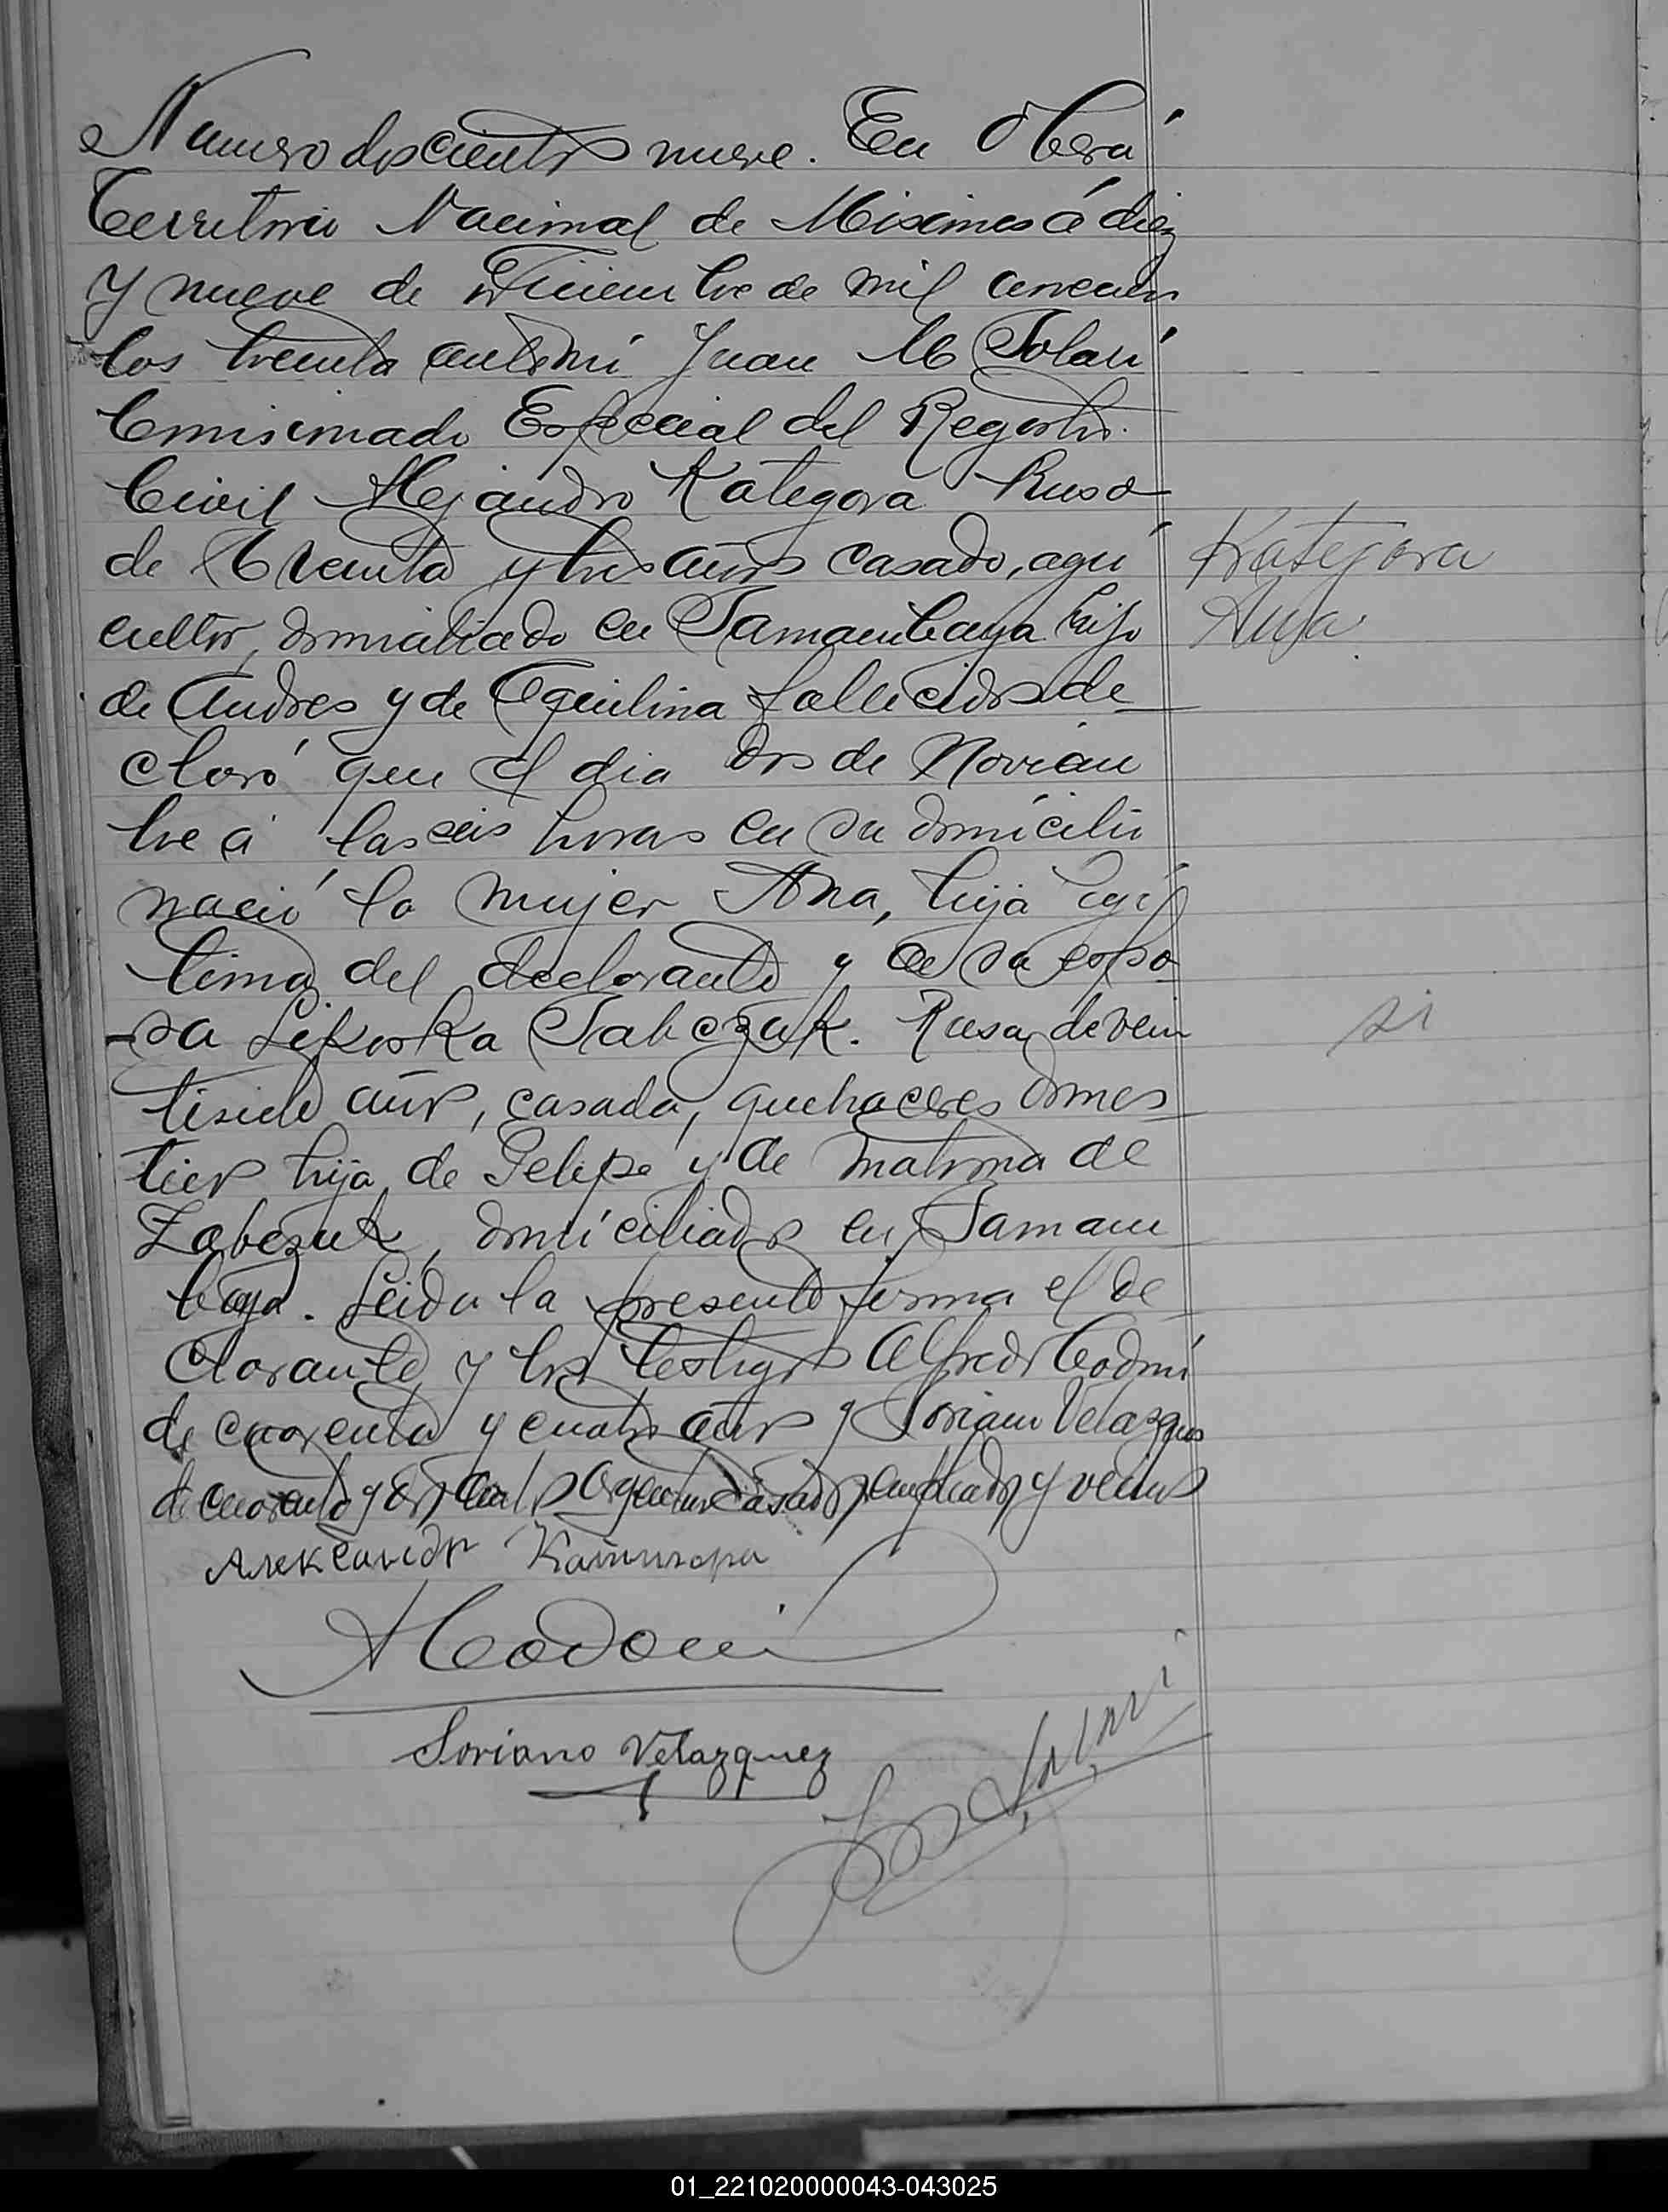 Numero doscientos nueve. En Oberá
Territorio Nacional de Misiones á diez
y nueve de Diciembre de mil novecien
tos treinta ante mi Juan M Solari
Comisionado Especial del Registro
Civil Alejandro Kategora Ruso
de treinta y tres años casado, agri
Kategora
cultor, domiciliado en Samambaya hijo
Ana
de Andres y de Aquilina fallecidos de
claró que el dia dos de Noviem
bre á las seis horas en su domicilio
nació la mujer Ana, hija legi
tima del declarante y de su espo
sa Tabczuk. Rusa, de vein
si
tisiete años, casada, quehaceres domes
ticos hija de Felipe y de Matrona de
Zabczuk, domiciliados en Samam
baya. Leida la presente firma el de
clarante y los testigos Alfredo Codoni
de cuarenta y cuatro años y Soriano Velazques
de cuarenta y dos años Argentinos casados, empleados y vecinos
Александр Катигора
ACodoni
Soriano Velazquez
Solari
01_221020000043-043025